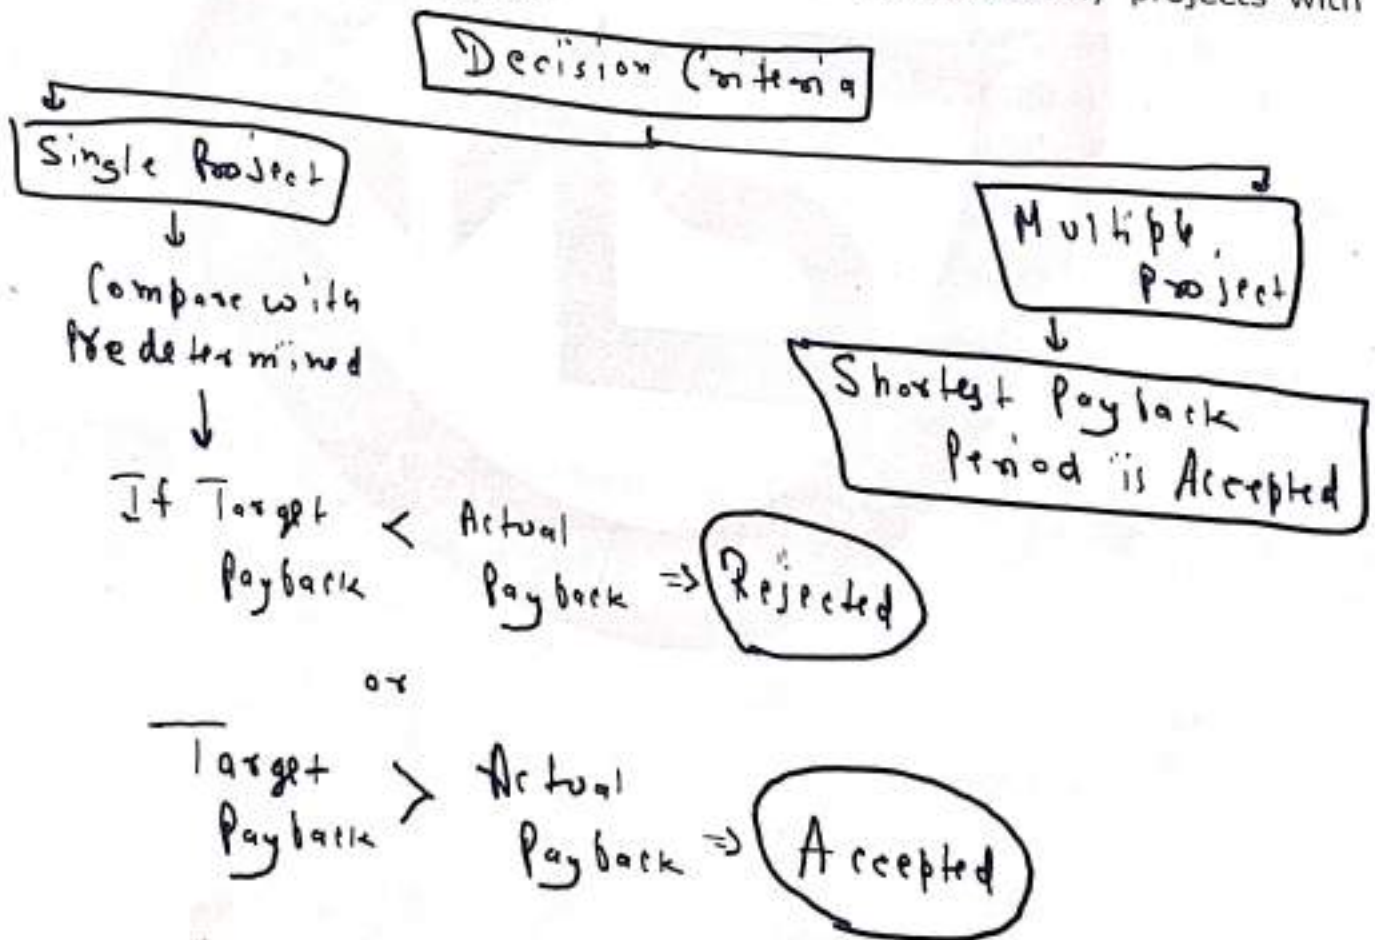 projects with
Decision Criteria
Single Project
Compare with
Predetermined
If Target < Actual
Payback Payback => Rejected
or
Target > Actual
Payback Payback => Accepted
Multiple
Project
Shortest Payback
Period is Accepted